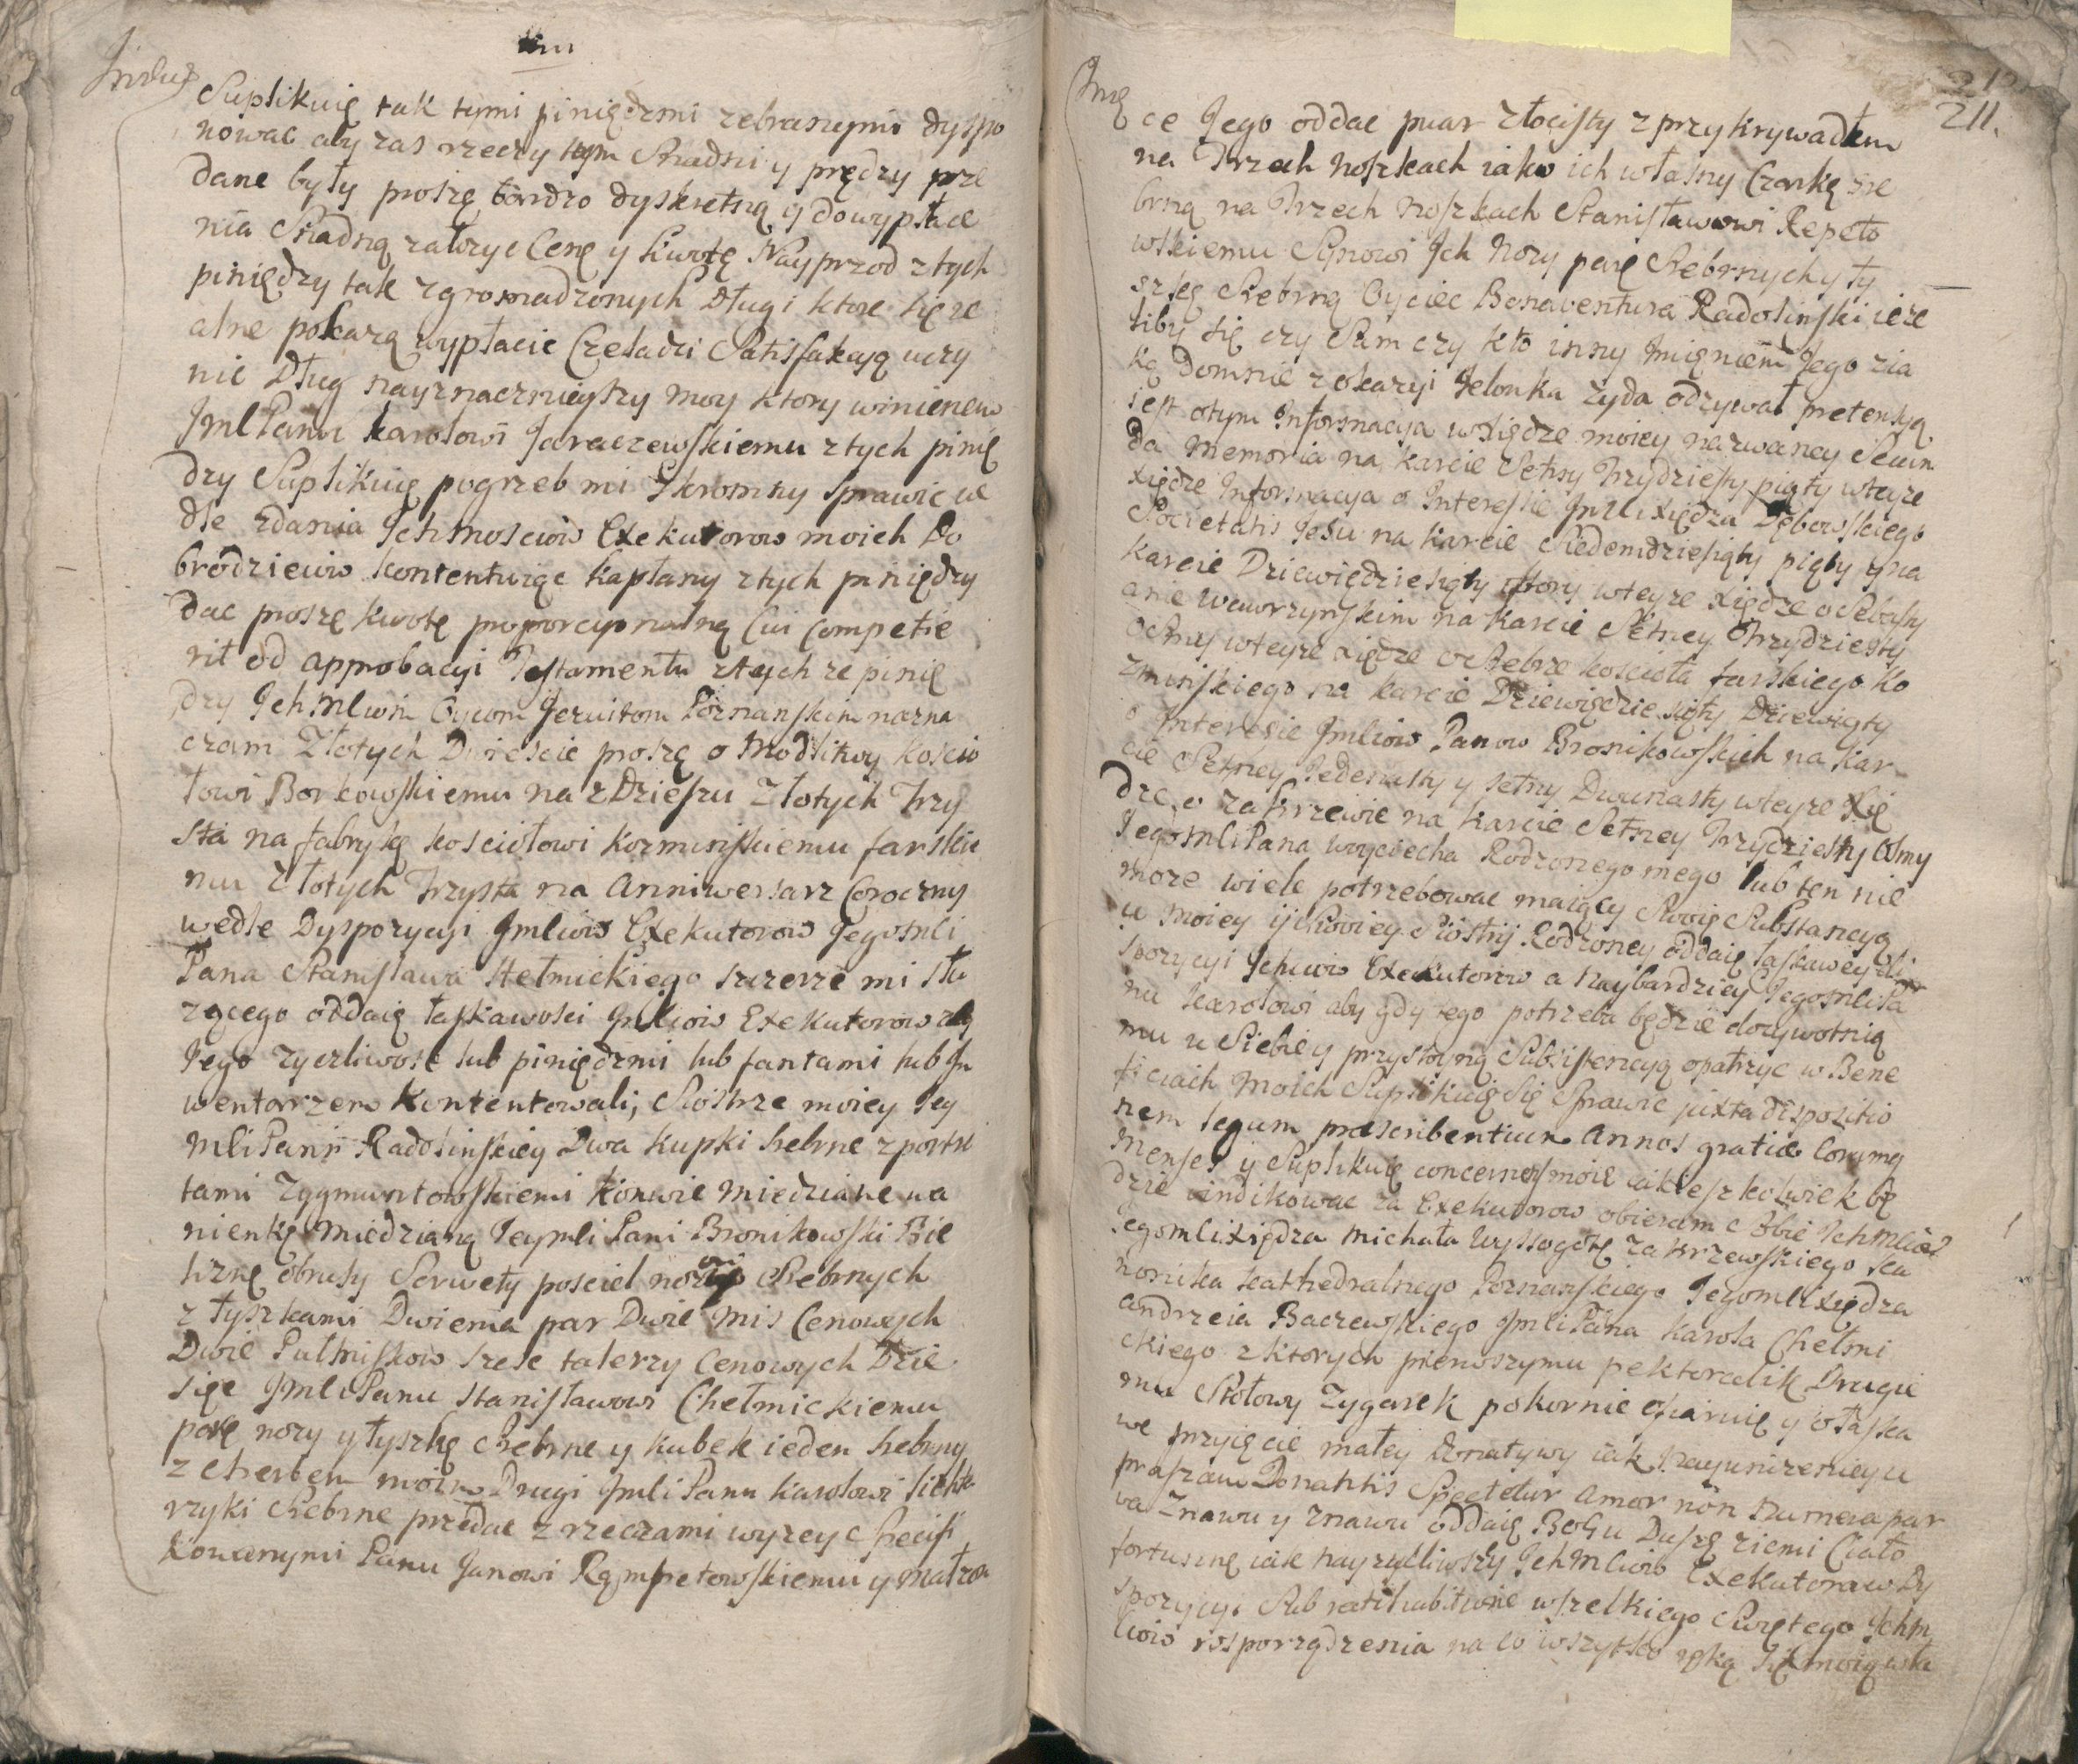 Suplikuię tak tymi piniędzmi zebranymi dyspo
nować aby zas rzeczy tym Snadni y prędzy prze
dane były proszę bardzo dyskretną y do wypłace
nia Snadną założyc Cenę y kwotę Nayprzod z tych
piniędzy tak zgromadzonych Długi ktore się re
alne pokazą wypłacic Czeladzi Satisfakcyą uczy
nic Dług nayznacznieyszy moy ktory winienem
JmlPanu karolowi Jaraczewskiemu z tych pinię
dzy Suplikuię pogrzeb mi Skromny sprawic we
dle zdania Ichmosciow Exekutorow moich Do
brodzieiow kontentuiąc kapłany z tych piniędzy
dac proszę kwotę proporcyonalną Cui Competie
rit od approbacyi Testamentu z tych ze pinię
dzy Ich Mlwm Oycom Jezuitom Poznanskim nazna
czam Złotych Dwiescie proszę o Modlitwy koscio
łowi Borkowskiemu na zDzieszu Złotych Trzy
sta na fabrykę kosciołowi kozminskiemu farskie
mu Złotych Trzysta na Anniwersarz Coroczny
wedle Dyspozycyi Jmlciow Exekutorow Jegomli
Pana Stanisława Hełmickiego szczerze mi słu
zącego oddaię łaskawosci Jmlciow Exekutorow aby
Jego zyczliwosc lub piniędzmi lub fantami lub In
wentarzem kontentowali, Siostrze moiey Jey
Mli Panij Radolinskiey Dwa kupki srebrne z portre
tami Zygmuntowskiemi konwie miedziane wa
nienkę miedzianą Jeymli Pani Bronikowski Bie
liznę obrusy Serwety posciel nozy Srebrnych
z łyszkami Dwiema par Dwie mis Cenowych
Dwie Pułmiskow szesc talerzy Cenowych Dzie
sięc Jmli Panu Stanisławowi Chełmickiemu
parę nozy y łyszkę Srebrne y kubek ieden srebrny
z Cherbem moim Drugi Jmli Panu karolowi lichta
rzyki Srebrne przedac z rzeczami wyzey Specifi
kowanymi Panu Janowi Rępetowskiemu y małzon
211.
ce Jego oddac puar złocisty z przykrywadłem
na Trzech noszkach iako ich własny Czarkę sre
brną na Trzech noszkach Stanisławowi Repeto
wskiemu Synowi Ich Nozy parę Srebrnych y ły
szkę Srebrną Oyciec Bonaventura Radolinski ieze
liby się czy Sam czy kto inny Imięniem Jego zia
ką domnie z okazyi Jelonka zyda odzywał pretensyą
iest otym Informacyja w xiędze moiey nazwaney Seun
da Memoria na karcie Setny Trzydziesty piąty wteyze
xiędze Informacya o Interessie Jmli xiędza Dębowskiego
Societatis Jesu na karcie Siedemdziesiąty piąty y na
karcie Dziewiędziesiąty wtory wteyze xiędze o Sebasty
anie Wawrzynskim na karcie Setney Trzydziesty
osmy wteyze xiędze o Srebrze kościoła farskiego ko
zminskiego na karcie Dziewiędziesiąty Dziewiąty
o Interesie Jmlciow Panow Bronikowskich na kar
cie Setney Jedenasty y setny Dwunasty wteyze xię
dze o zakrzewie na karcie Setney Trzydziesty osmy
Jegomli Pana Woyciecha Rodzonego mego lub ten nie
moze wiele potrzebowac maiący Swoię Substancyą
u moiey ijchowiey Siostrij Rodzoney oddaię łaskawey dis
pozycyi Ichmciow Exekutorow a Naybardziey Jegomli Pa
nu karolowi aby gdy tego potrzeba będzie dozywotnią
mu u Siebie y przystoyną Subsistencyą opatrzyc w Bene
ficiach Moich Suplikuię Się Sprawic juxta dispositio
nem legum praescribentium Annos gratiae Coramq
Menses y Suplikuię concernens moie iakieszkolwiek bę
dzie vindikowac za Exekutorow obieram Sobie Ichmlciow
Jegomli xiędza Michała Wyssogotę Zakrzewskiego ka
nonika kathedralnego Poznanskiego Jegomli xiędza
Andrzeia Baczewskiego Jmli Pana Karola Chełmi
ckiego z ktorych pierwszymu pektoralik Drugie
mu Stołowy Zygarek pokornie ofiaruię y o łaska
we przyięcie małey donatywy iak nayunizeniey u
praszam Donantis Spectetur amor non numera par
va znawu y znawu oddaię BoGu Duszę ziemi Ciało
fortunnę iak nayzyczliwszy Ichmlciow Exekutoraw Dy
spozycyi Sub ratihabitione wszelkiego Swiętego Ichm
lciow rosporządzenia na co wszytko ręką Się moią wła